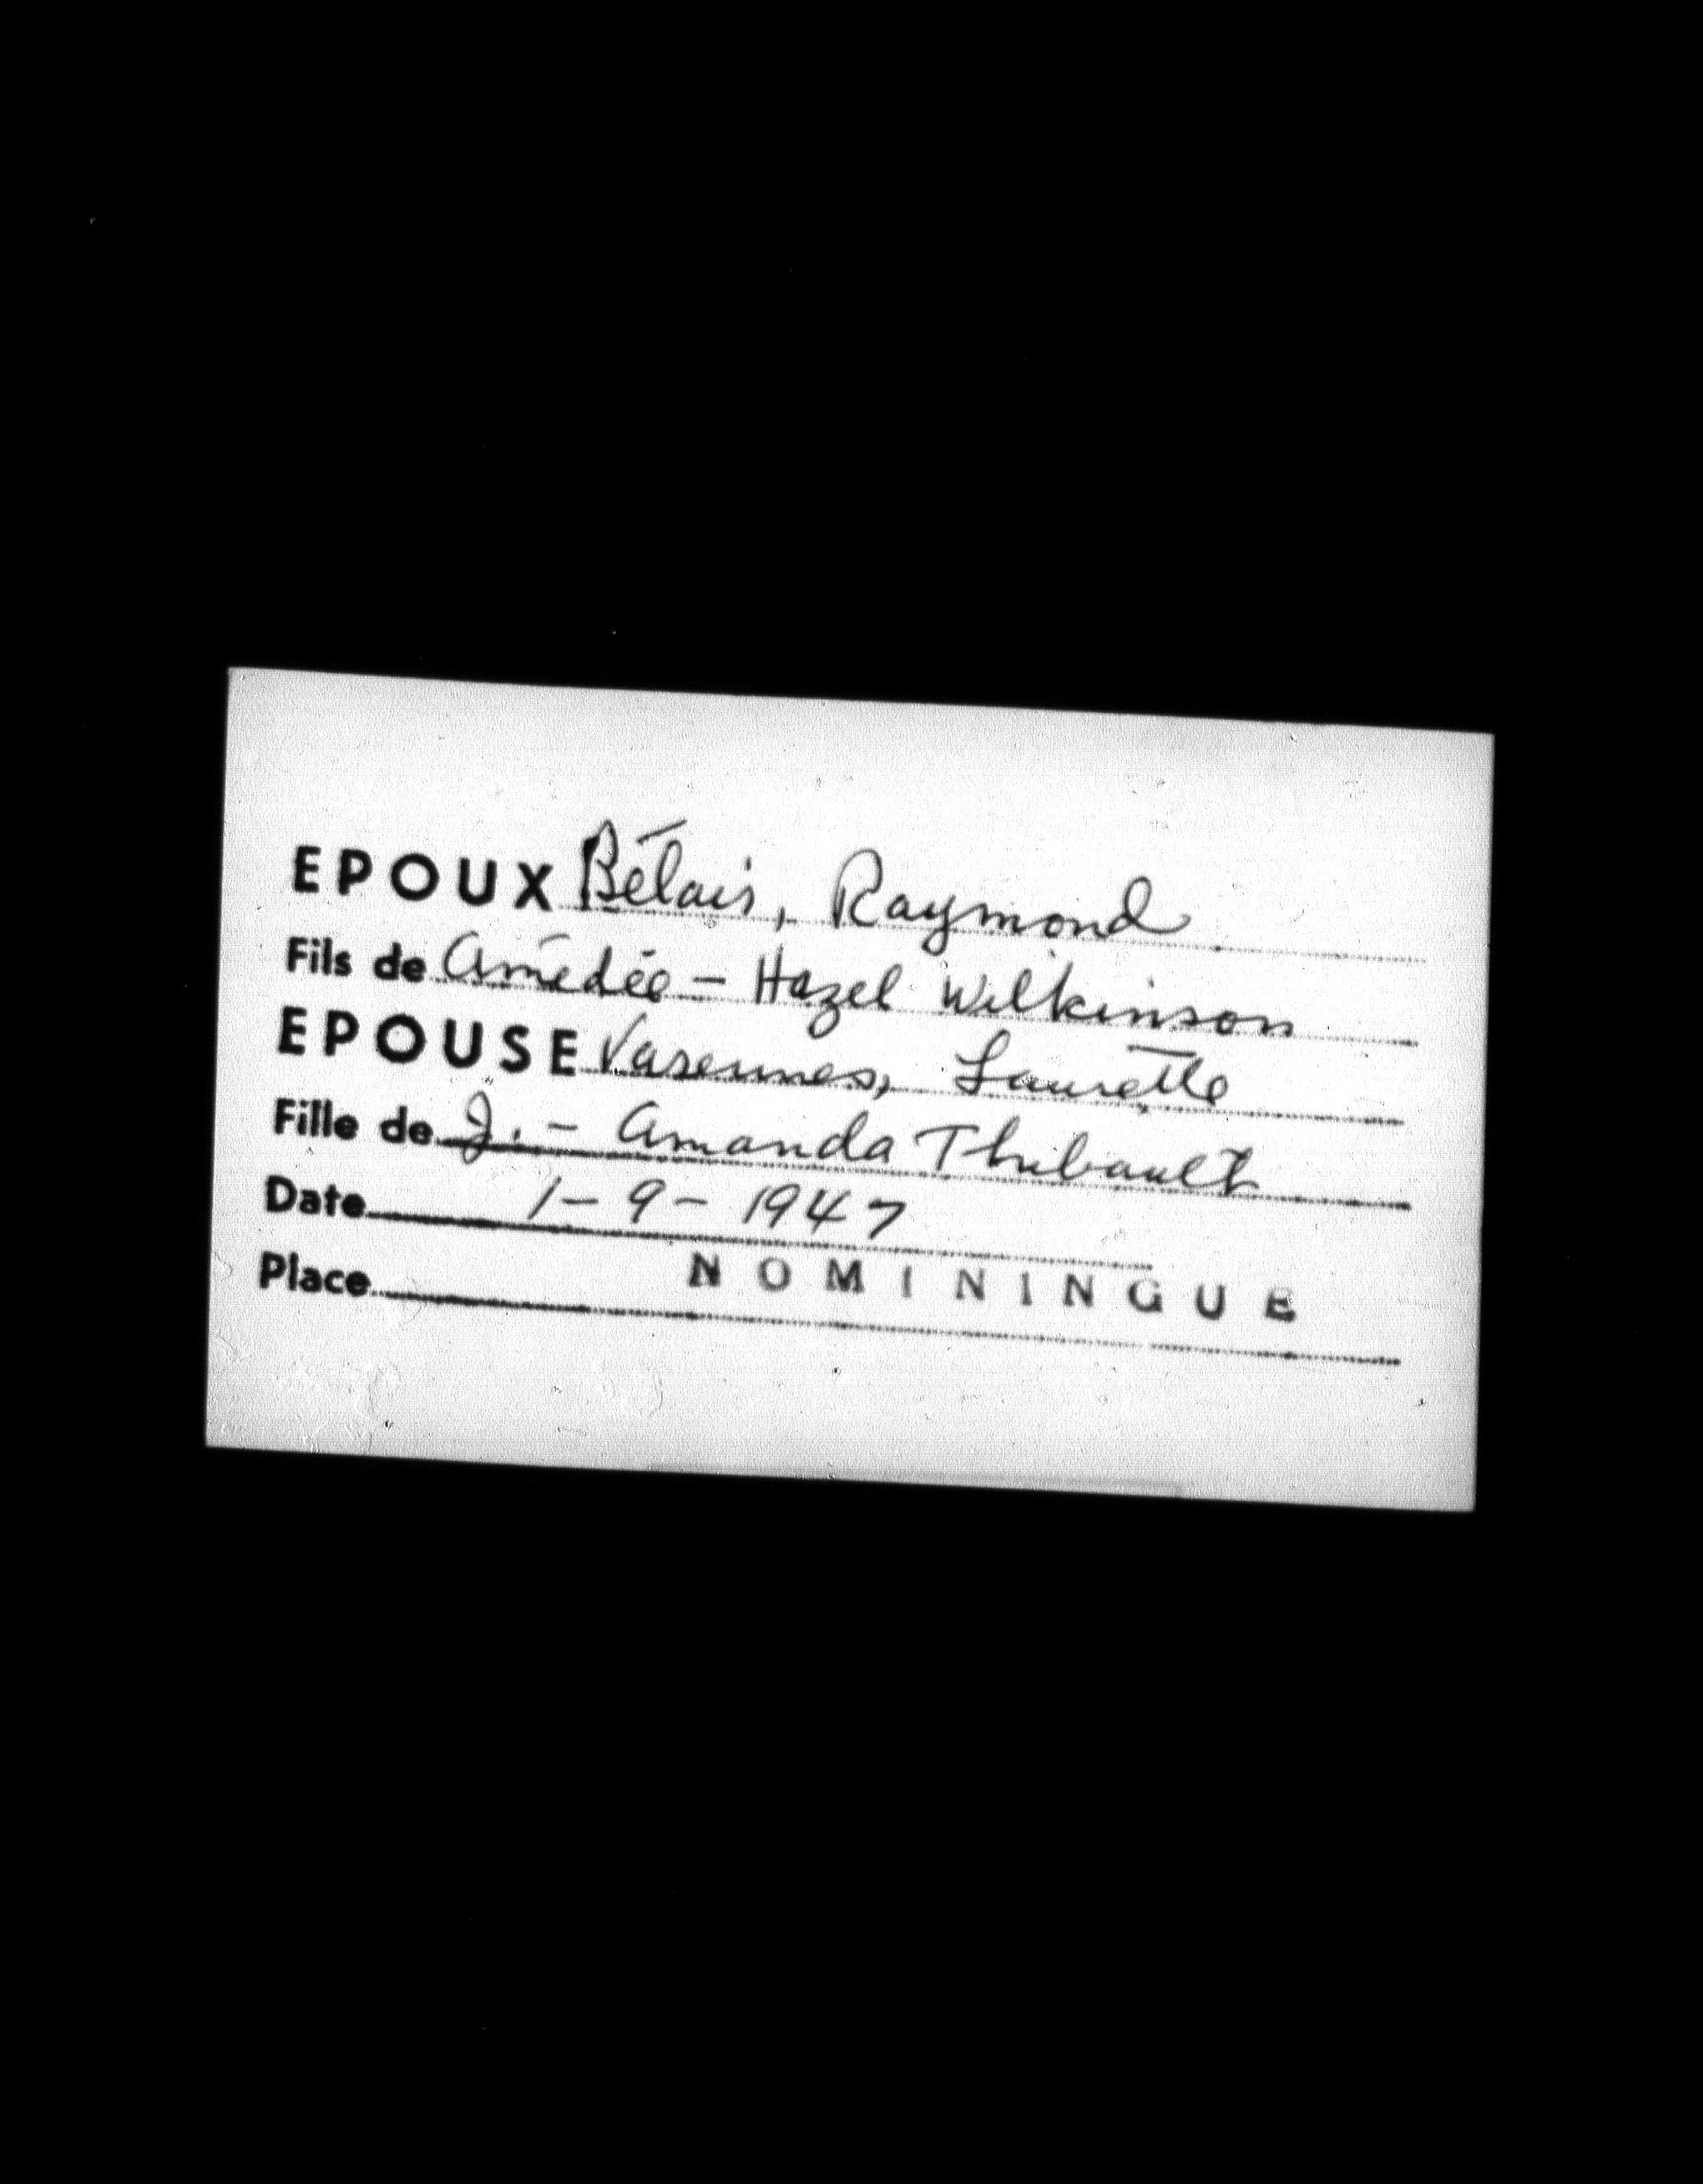 EPOUX Bélais, Raymond
Fils de Amédée - Hazel Wilkinson
EPOUSE Varennes, Laurette
Fille de J. - Amanda Thibault
Date 1-9-1947
Place NOMININGUE